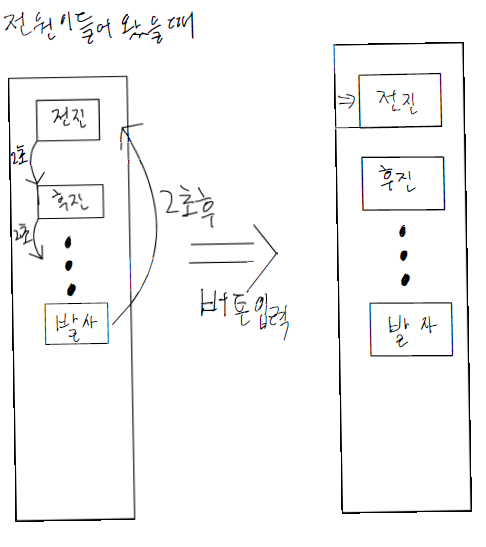 전원이들어 왔을때
전진
2초
후진
2초
발사
2초후
버튼입력
⇒ 전진
후진
발사